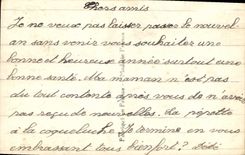 Chers amis
Je ne veux pas laisser passer le nouvel
an sans venir vous souhaiter une
bonne et heureuse année surtout une
bonne santé. Ma maman n'est pas
du tout contente après vous de n'avoir
pas reçu de nouvelles. La pépette
a la coqueluche. Je termine en vous
embrassant tous bien fort.